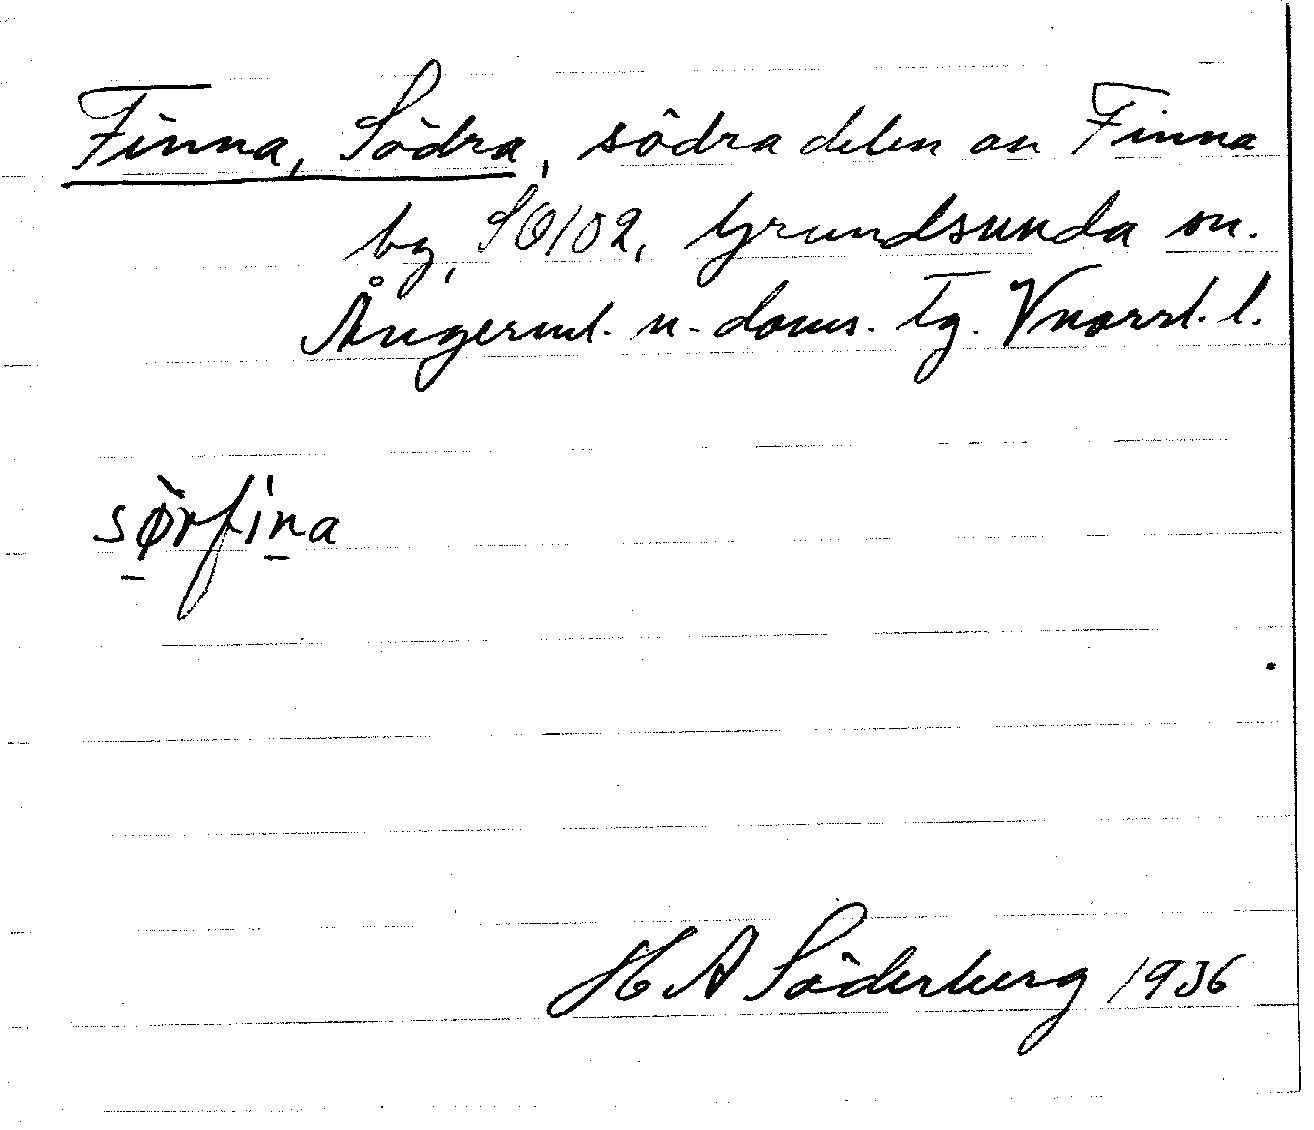 Finna, Södra, södra delen av Finna
by, SO/02, Grundsunda sn.
Ångerml. n. doms. Tg. Vnorrl. l.
sø̀rfìna
H A Söderberg 1936